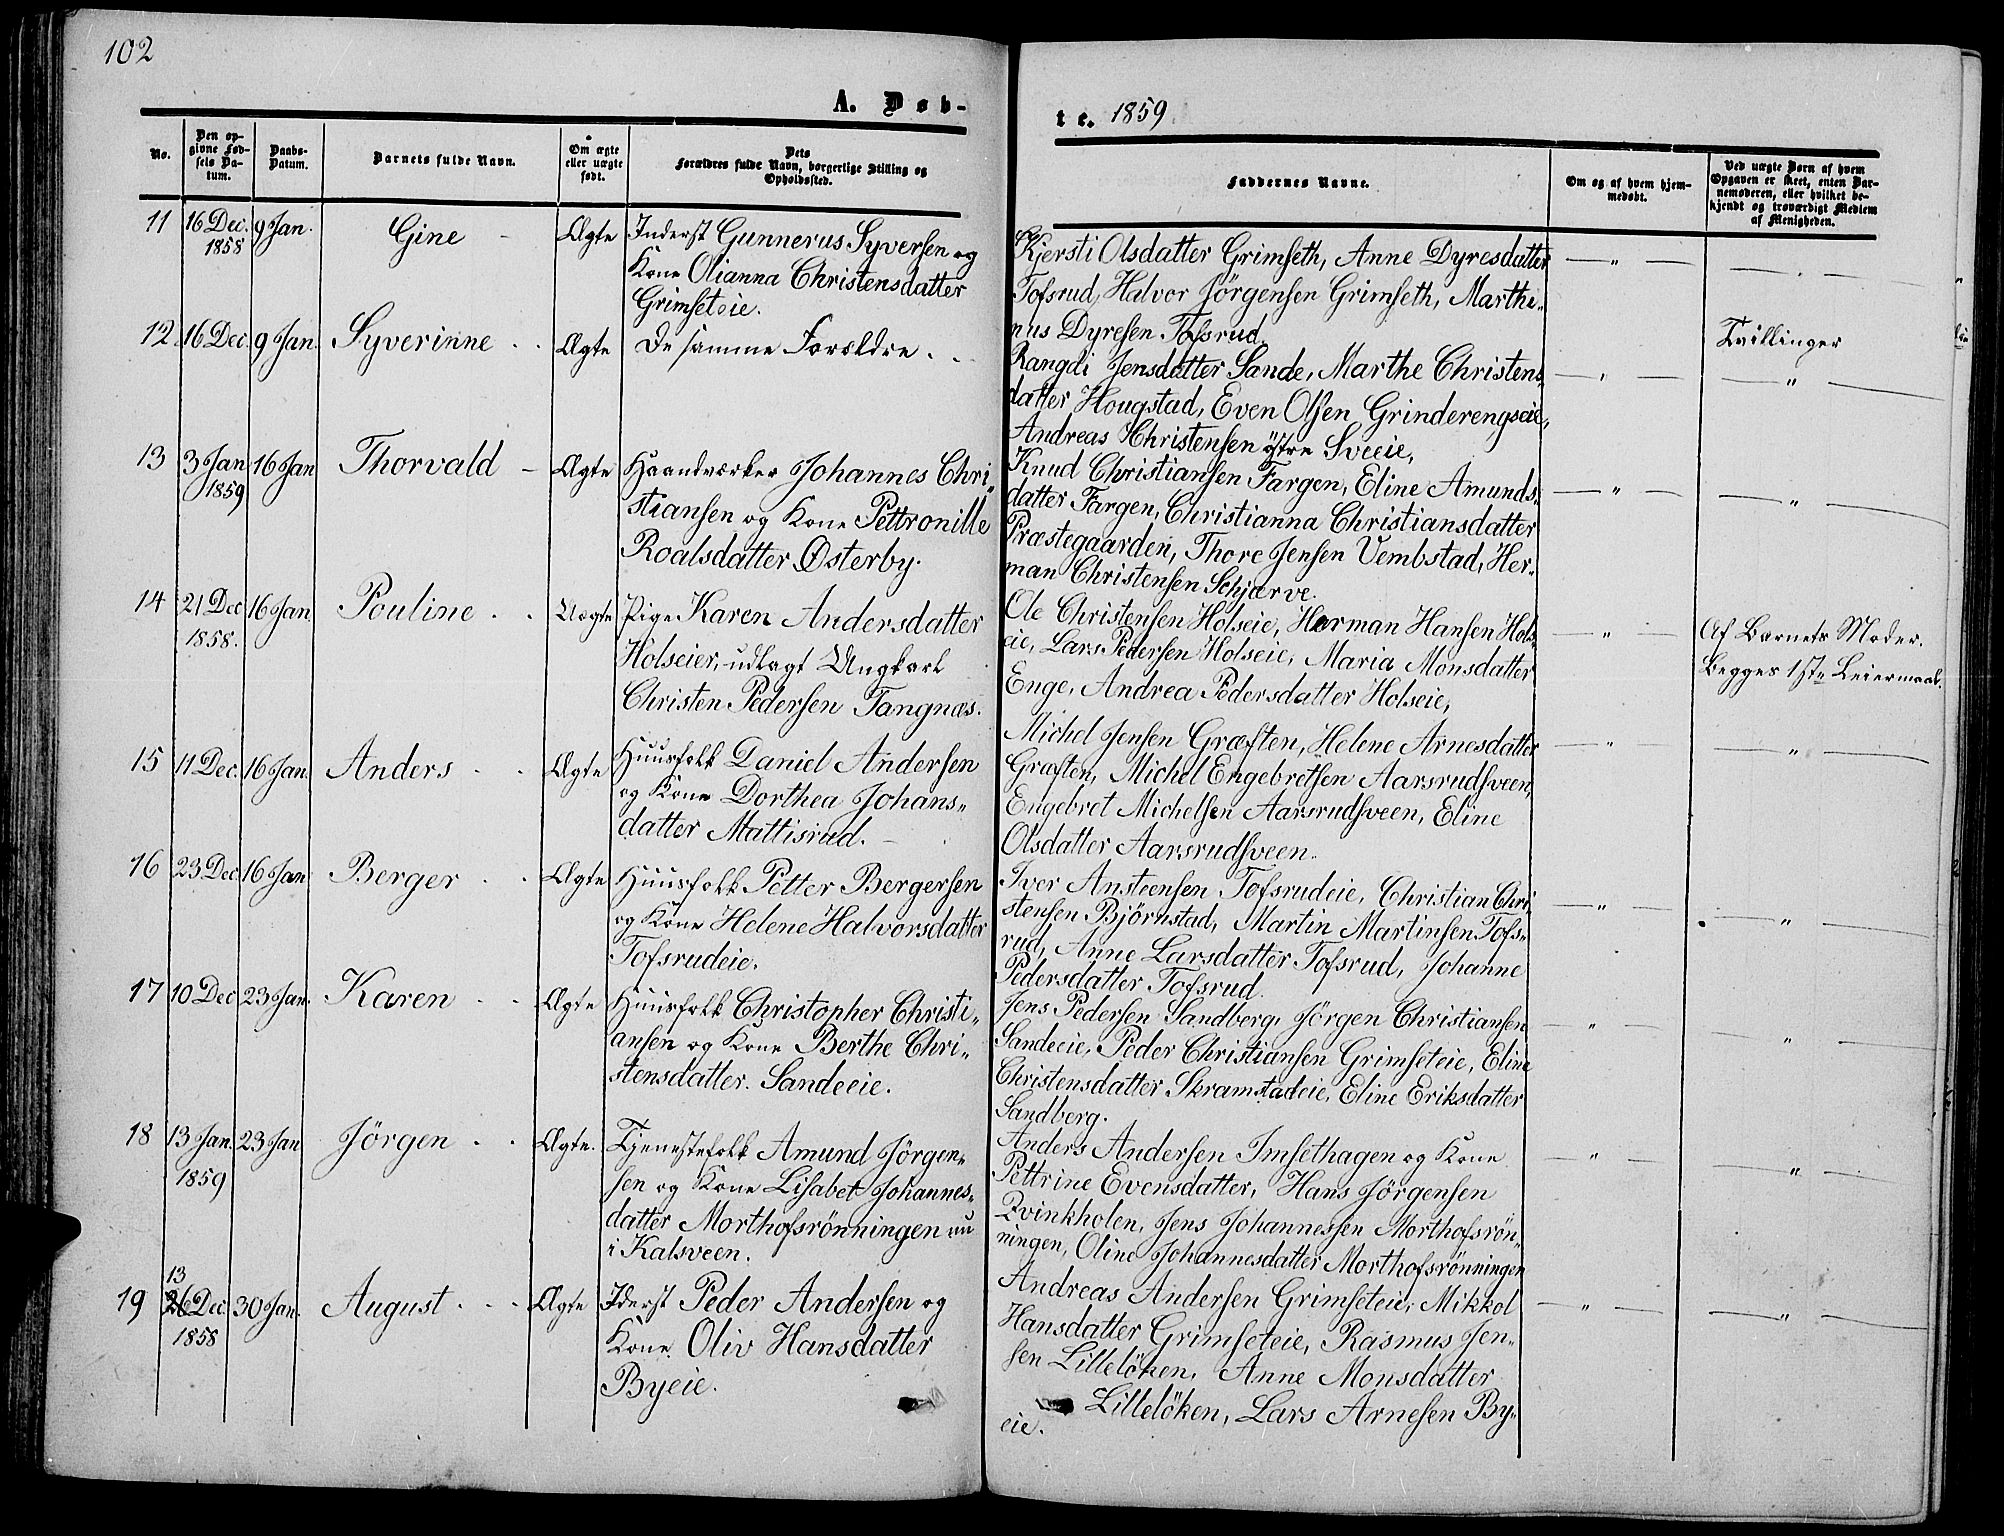 102
A. Døb-
te. 1859.
No.
Den op-
givne Fød-
sels Da-
tum.
Daabs-
Datum.
Barnets fulde Navn.
Om ægte
eller uægte
født.
Dets
Forældres fulde Navn, borgerlige Stilling og
Opholdssted.
Faddernes Navne.
Om og af hvem hjem-
medøbt.
Ved uægte Børn af hvem
Opgaven er skeet, enten Bar-
nemoderen, eller hvilket be-
kjendt og troværdigt Medlem
af Menigheden.
11 16 Dec. 9 Jan. Gine - Ægte Inderst Gunnerus Syversen og
1858 Kone Olianna Christensdatter
Grimseteie.
Kjersti Olsdatter Grimseth, Anne Dyresdatter — " —
Tofsrud, Halvor Jörgensen Grimseth, Marthi-
nus Dyresen Tofsrud.
12 16 Dec. 9 Jan. Syverinne Ægte De samme Forældre.
Tvillinger
Rangdi Jensdatter Sande, Marthe Christens- — " — — " —
datter Hougstad, Even Olsen Grinderengseie,
Andreas Christensen östre Sveeie,
13 3 Jan 16 Jan Thorvald - Ægte Haandværker Johannes Chri-
1859 stiansen og Kone Pettronille
Roalsdatter Østerby.
Knud Christiansen Fargen, Eline Amunds- — " — — " —
datter Fargen, Christianna Christiansdatter
Præstegaarden, Thore Jensen Vembstad, Her-
man Christensen Schjærve.
14 21 Dec 16 Jan Pouline Uægte Pige Karen Andersdatter
1858. Holseier, udlagt Ungkarl
Christen Pedersen Tangnæs.
Ole Christensen Holseie, Herman Hansen Hols- — " — Af Barnets Moder.
eie, Lars Pedersen Holseie, Maria Monsdatter Begges 1ste Leiermaal.
Enge, Andrea Pedersdatter Holseie,
15 11 Dec. 16 Jan. Anders Ægte Huusfolk Daniel Andersen
og Kone Dorthea Johans-
datter Mattisrud.
Michel Jensen Græften, Helene Arnesdatter — " — — " —
Græften, Michel Engebretsen Aarsrudsveen,
Engebret Michelsen Aarsrudsveen, Eline
Olsdatter Aarsrudsveen.
16 23 Dec. 16 Jan Berger Ægte Huusfolk Petter Bergersen
og Kone Helene Halvorsdatter
Tofsrudeie.
Iver Ansteensen Tofsrudeie, Christian Chri- — " — — " —
stensen Björnstad, Martin Martinsen Tofs-
rud, Anne Larsdatter Tofsrud, Johanne
Pedersdatter Tofsrud.
17 10 Dec 23 Jan. Karen Ægte Huusfolk Christopher Christi-
ansen og Kone Berthe Chri-
stensdatter. Sandeeie.
Jens Pedersen Sandberg, Jörgen Christiansen — " — — " —
Sandeeie, Peder Christiansen Grimseteie, Eline
Christensdatter Skramstadeie, Eline Eriksdatter
Sandberg.
18 13 Jan. 23 Jan Jörgen Ægte. Tjenestefolk Amund Jörgen-
1859 sen og Kone Lisabet Johannes-
datter Morthofsrönningen nu
i Kalsveen.
Anders Andersen Imsethagen og Kone — " — — " —
Pettrine Evensdatter, Hans Jörgensen
Qvinkholen, Jens Johannessen Morthofsrön-
ningen, Oline Johannesdatter Morthofsrönningen
13
19 26 Dec 30 Jan. August Ægte Iderst Peder Andersen og
1858 Kone Oliv Hansdatter
Byeie.
Andreas Andersen Grimseteie, Mikkol — " — — " —
Hansdatter Grimseteie, Rasmus Jen-
sen Lillelöken, Anne Monsdatter
Lillelöken, Lars Arnesen By-
eie.